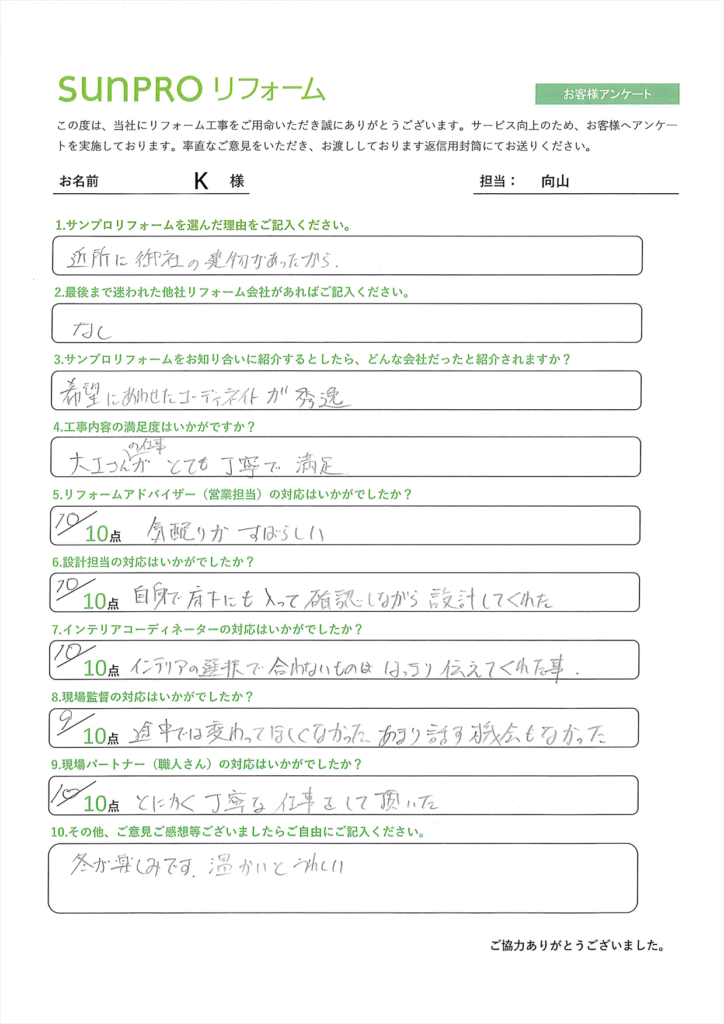 SUNPRO リフォーム
お客様アンケート
この度は、当社にリフォーム工事をご用命いただき誠にありがとうございます。サービス向上のため、お客様へアンケー
トを実施しております。率直なご意見をいただき、お渡ししております返信用封筒にてお送りください。
お名前 K 様 担当： 向山
1.サンプロリフォームを選んだ理由をご記入ください。
近所に御社の建物があったから.
2.最後まで迷われた他社リフォーム会社があればご記入ください。
なし
3.サンプロリフォームをお知り合いに紹介するとしたら、どんな会社だったと紹介されますか？
希望にあわせたコーディネイトが秀逸
4.工事内容の満足度はいかがですか？
の仕事
大工さんが とても丁寧で 満足
5.リフォームアドバイザー（営業担当）の対応はいかがでしたか？
10/10点 気配りが すばらしい
6.設計担当の対応はいかがでしたか？
10/10点 自身で床下にも入って確認しながら設計してくれた
7.インテリアコーディネーターの対応はいかがでしたか？
10/10点 インテリアの選択で合わないものははっきり伝えてくれた事.
8.現場監督の対応はいかがでしたか？
9/10点 途中では変わってほしくなかった あまり話す機会もなかった
9.現場パートナー（職人さん）の対応はいかがでしたか？
10/10点 とにかく丁寧な仕事をして頂いた
10.その他、ご意見ご感想等ございましたらご自由にご記入ください。
冬が楽しみです. 温かいとうれしい
ご協力ありがとうございました。